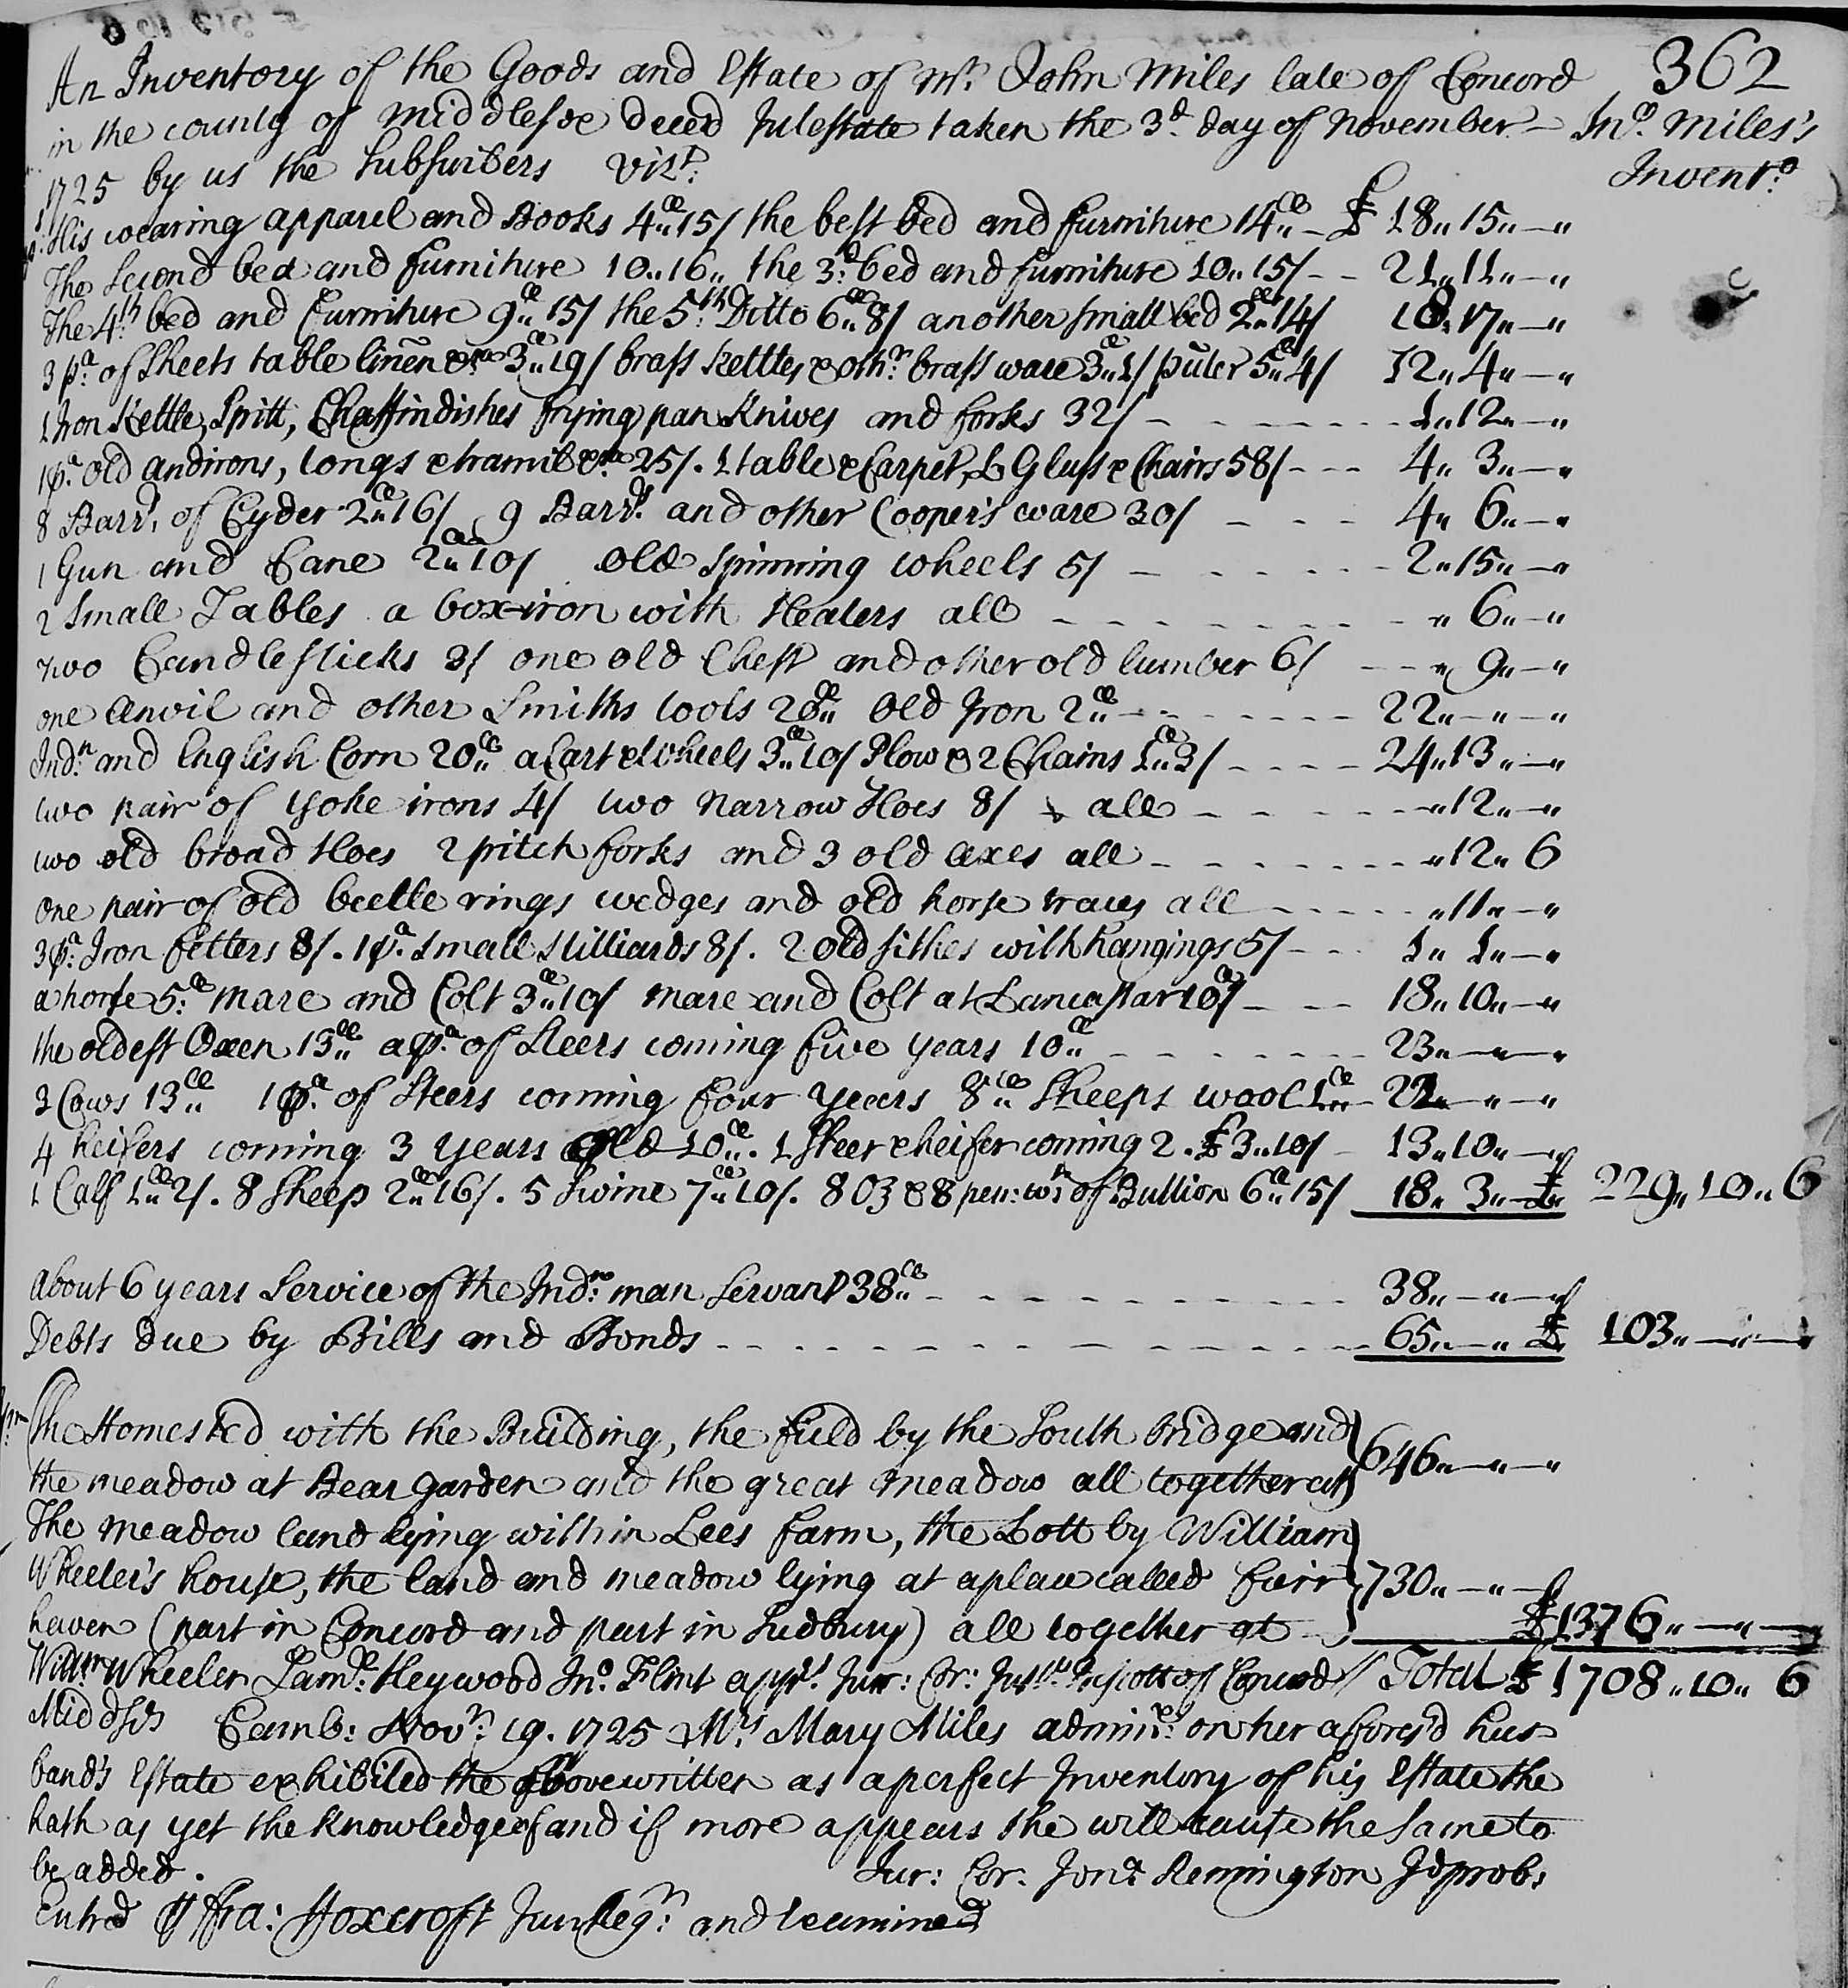 362
An Inventory of the Goods and Estate of Mr. John Miles late of Concord
in the county of Middlesx Deced Intestate taken the 3d day of November - Jno. Miles's
1725 by us the Subscribers Vizt. Invento.
His wearing apparel and Books 4„15/ the best bed and furniture 14„ - £ 18„15„—„
The Second bed and furniture 10„16„ the 3d bed and furniture 10„15/ - - 21„11„—„
The 4th bed and furniture 9„15/ the 5th Ditto 6„8/ another small bed 2„14/ 18„17„—„
3 pa. of Sheets table linen &ca 3„19/ brass kettles & othr. brass ware 3„1/ puter 5„4/ 12„4„—„
1 Iron Kettle, Spitt, Chaffindishes frying pan Knives and forks 32/ - - - 1„12„—„
1 pa. old andirons, tongs & tramil &ca 25/. 1 table & Carpet, L Glass & Chairs 58/ - - - 4„3„—„
8 Barrs. of Cyder 2„16/ 9 Barrs. and other Cooper's ware 30/ - - - 4„6„—„
1 Gun and Cane 2„10/ old Spinning wheels 5/ - - - 2„15„—„
2 Small Tables a box-iron with Heaters all - - - „6„—„
two Candlesticks 3/ one old Chest and other old lumber 6/ - - - „9„—„
one Anvil and other Smiths tools 20„ old Iron 2„ - - - 22„—„—„
Indn. and English Corn 20„ a Cart & Wheels 3„10/ Plow & 2 Chains 1„3/ - - - 24„13„—„
two pair of yoke irons 4/ two narrow Hoes 8/ all - - - „12„—„
two old broad Hoes 2 pitch forks and 3 old axes all - - - „12„6
one pair of old beetle rings wedges and old horse traces all - - - „11„—„
3 pa. Iron fetters 8/. 1 pa. Small Stilliards 8/. 2 old sithes with hangings 5/ - - - 1„1„—„
a horse 5. mare and Colt 3„10/ mare and Colt at Lancastar 10/ - - - 18„10„—„
the oldest Oxen 13„ a pa. of Steers coming five years 10„ - - - 23„—„—„
3 Cows 13„ 1 pa. of Steers coming four years 8„ Sheeps wool 1„ - 22„—„—„
4 heifers coming 3 years Old 10„. 1 Steer & heifer coming 2. £3„10/ - 13„10„—„
1 Calf 1„2/. 8 Sheep 2„16/. 5 Swine 7„10/. 8 oz & 8 pen: wt. of Bullion 6„15/ 18„3„—„ £ 229„10„6
About 6 years Service of the Indn. man Servant 38„ - - - 38„—„—„
Debts due by Bills and Bonds - - - 65„—„ £ 103„—„—„
The Homested with the Building, the field by the South Bridge and
the meadow at Bear Garden and the great meadow all together at } 646„—„—„
The meadow land lying within Lees farm, the Lott by William
Wheeler's house, the land and meadow lying at a place called fair } 730„—„—
haven (part in Concord and part in Sudbury) all together at - £1376„—„—
Willm Wheeler Saml. Heywood Jno. Flint apprs. Jur: Cor: of Concord // Total £1708„10„6
Middsx Camb: Novr. 19. 1725 Mrs. Mary Miles admin: on her aforesd hus=
band's Estate exhibited the above written as a perfect Inventory of his Estate she
hath as yet the knowledge of and if more appears she will cause the same to
be added. Jur: Cor: Jona. Remington J prob:
Entred P Fra: Foxcroft Jun Regr. and examined